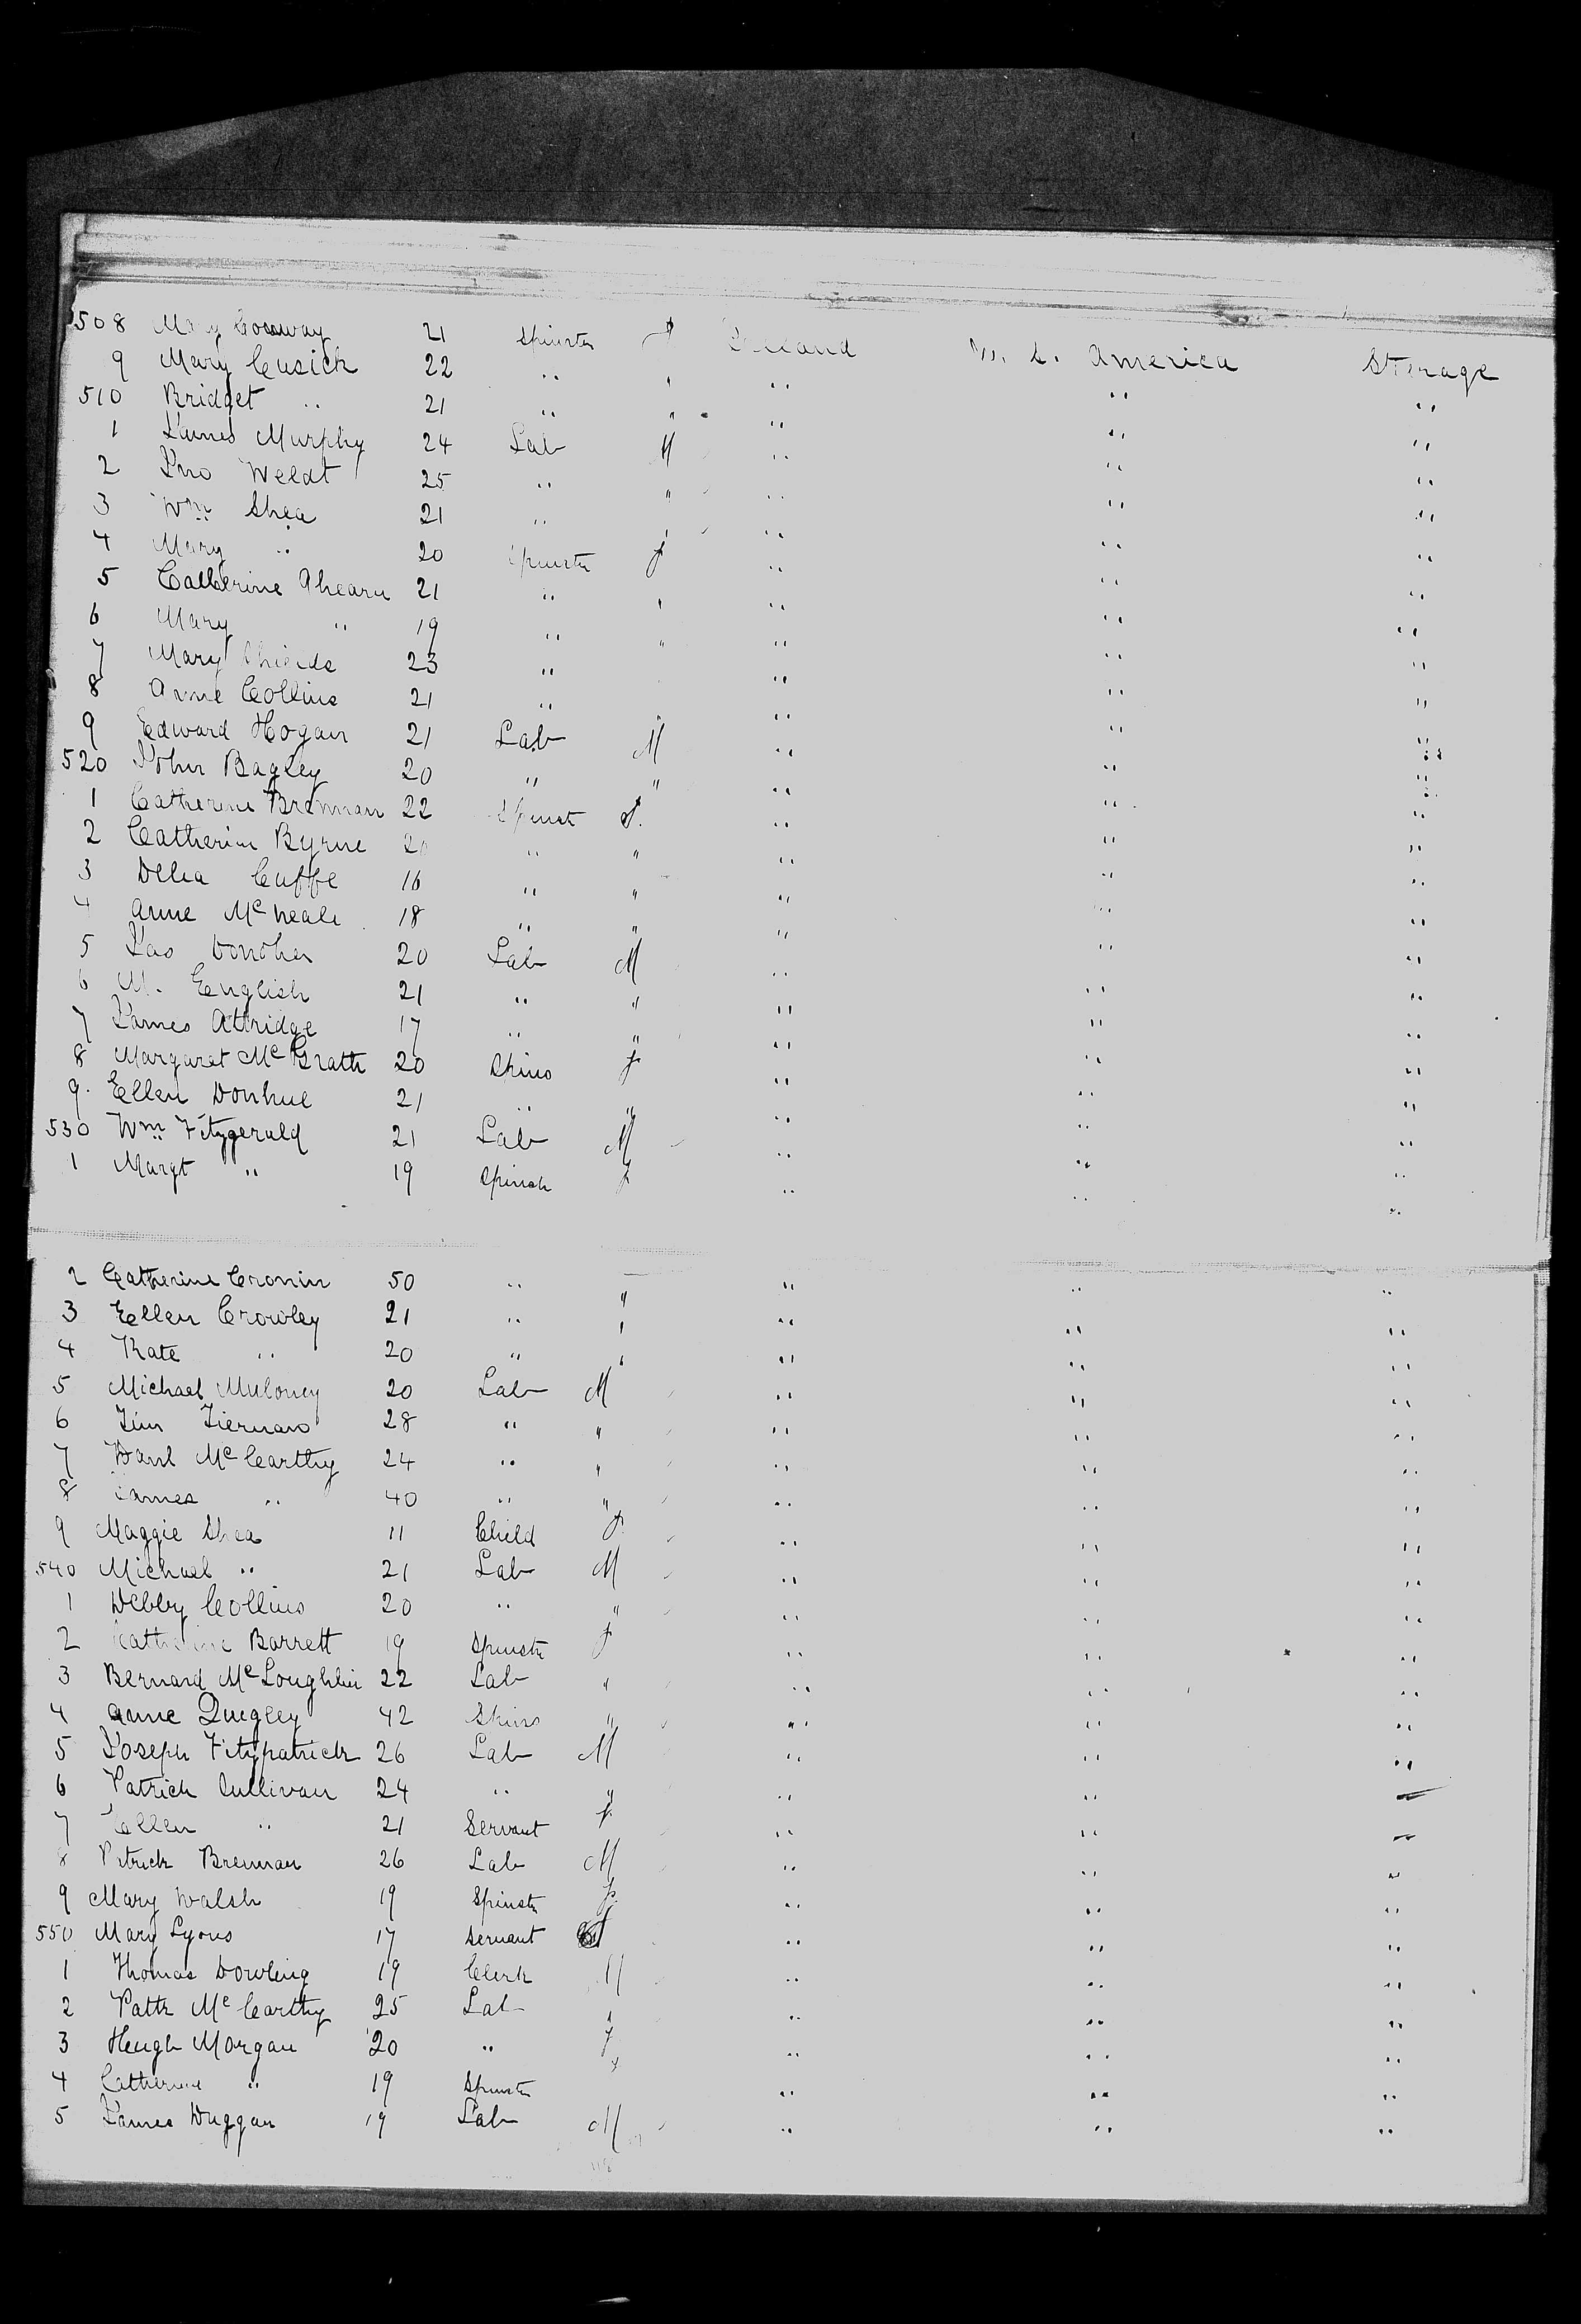 508 Mary Conway 21 Spinster f Ireland U. S. America Steerage
9 Mary Cusick 22 " " " " "
510 Bridget " 21 " " " " "
1 James Murphy 24 Lab M " " "
2 Jno Weldt 25 " " " " "
3 Wm Shea 21 " " " " "
4 Mary " 20 Spinster f " " "
5 Catherine Ahearn 21 " " " " "
6 Mary " 19 " " " " "
7 Mary Shields 23 " " " "
8 Anne Collins 21 " " " " "
9 Edward Hogan 21 Lab M " " "
520 John Bagley 20 " " " " "
1 Catherine Brennan 22 Spinst f. " " "
2 Catherine Byrne 20 " " " " "
3 Delia Cuffe 16 " " " " "
4 Anne McNeale 18 " " " " "
5 Jas Donoher 20 Lab M " " "
6 M. English 21 " " " " "
7 James Attridge 17 " " " " "
8 Margaret McGrath 20 Spins f " " "
9. Ellen Donhue 21 " " " " "
530 Wm Fitzgerald 21 Lab M " " "
1 Margt " 19 Spinst f " " "
2 Catherine Cronin 50 " " " " "
3 Ellen Crowley 21 " " " " "
4 Kate " 20 " " " " "
5 Michael Muloney 20 Lab M " " "
6 Jim Tiernan 28 " " " " "
7 Danl McCarthy 24 " " " " "
8 James " 40 " " " " "
9 Maggie Shea 11 Child f " " "
540 Michael " 21 Lab M " " "
1 Debby Collins 20 " " " " "
2 Catherine Barrett 19 Spinstr f " " "
3 Bernard McLoughlin 22 Lab " " " "
4 Anne Quigley 42 Spins " " " "
5 Joseph Fitzpatrick 26 Lab M " " "
6 Patrick Sullivan 24 " " " " "
7 Ellen " 21 Servant f " " "
8 Patrick Brennan 26 Lab M " " "
9 Mary Walsh 19 Spinstr f " " "
550 Mary Lyons 17 Servant f " " "
1 Thomas Dowling 19 Clerk M " " "
2 Patk McCarthy 25 Lab " " " "
3 Hugh Morgan 20 " f " " "
4 Catherine " 19 Spinster " " "
5 James Duggan 19 Lab M " " "